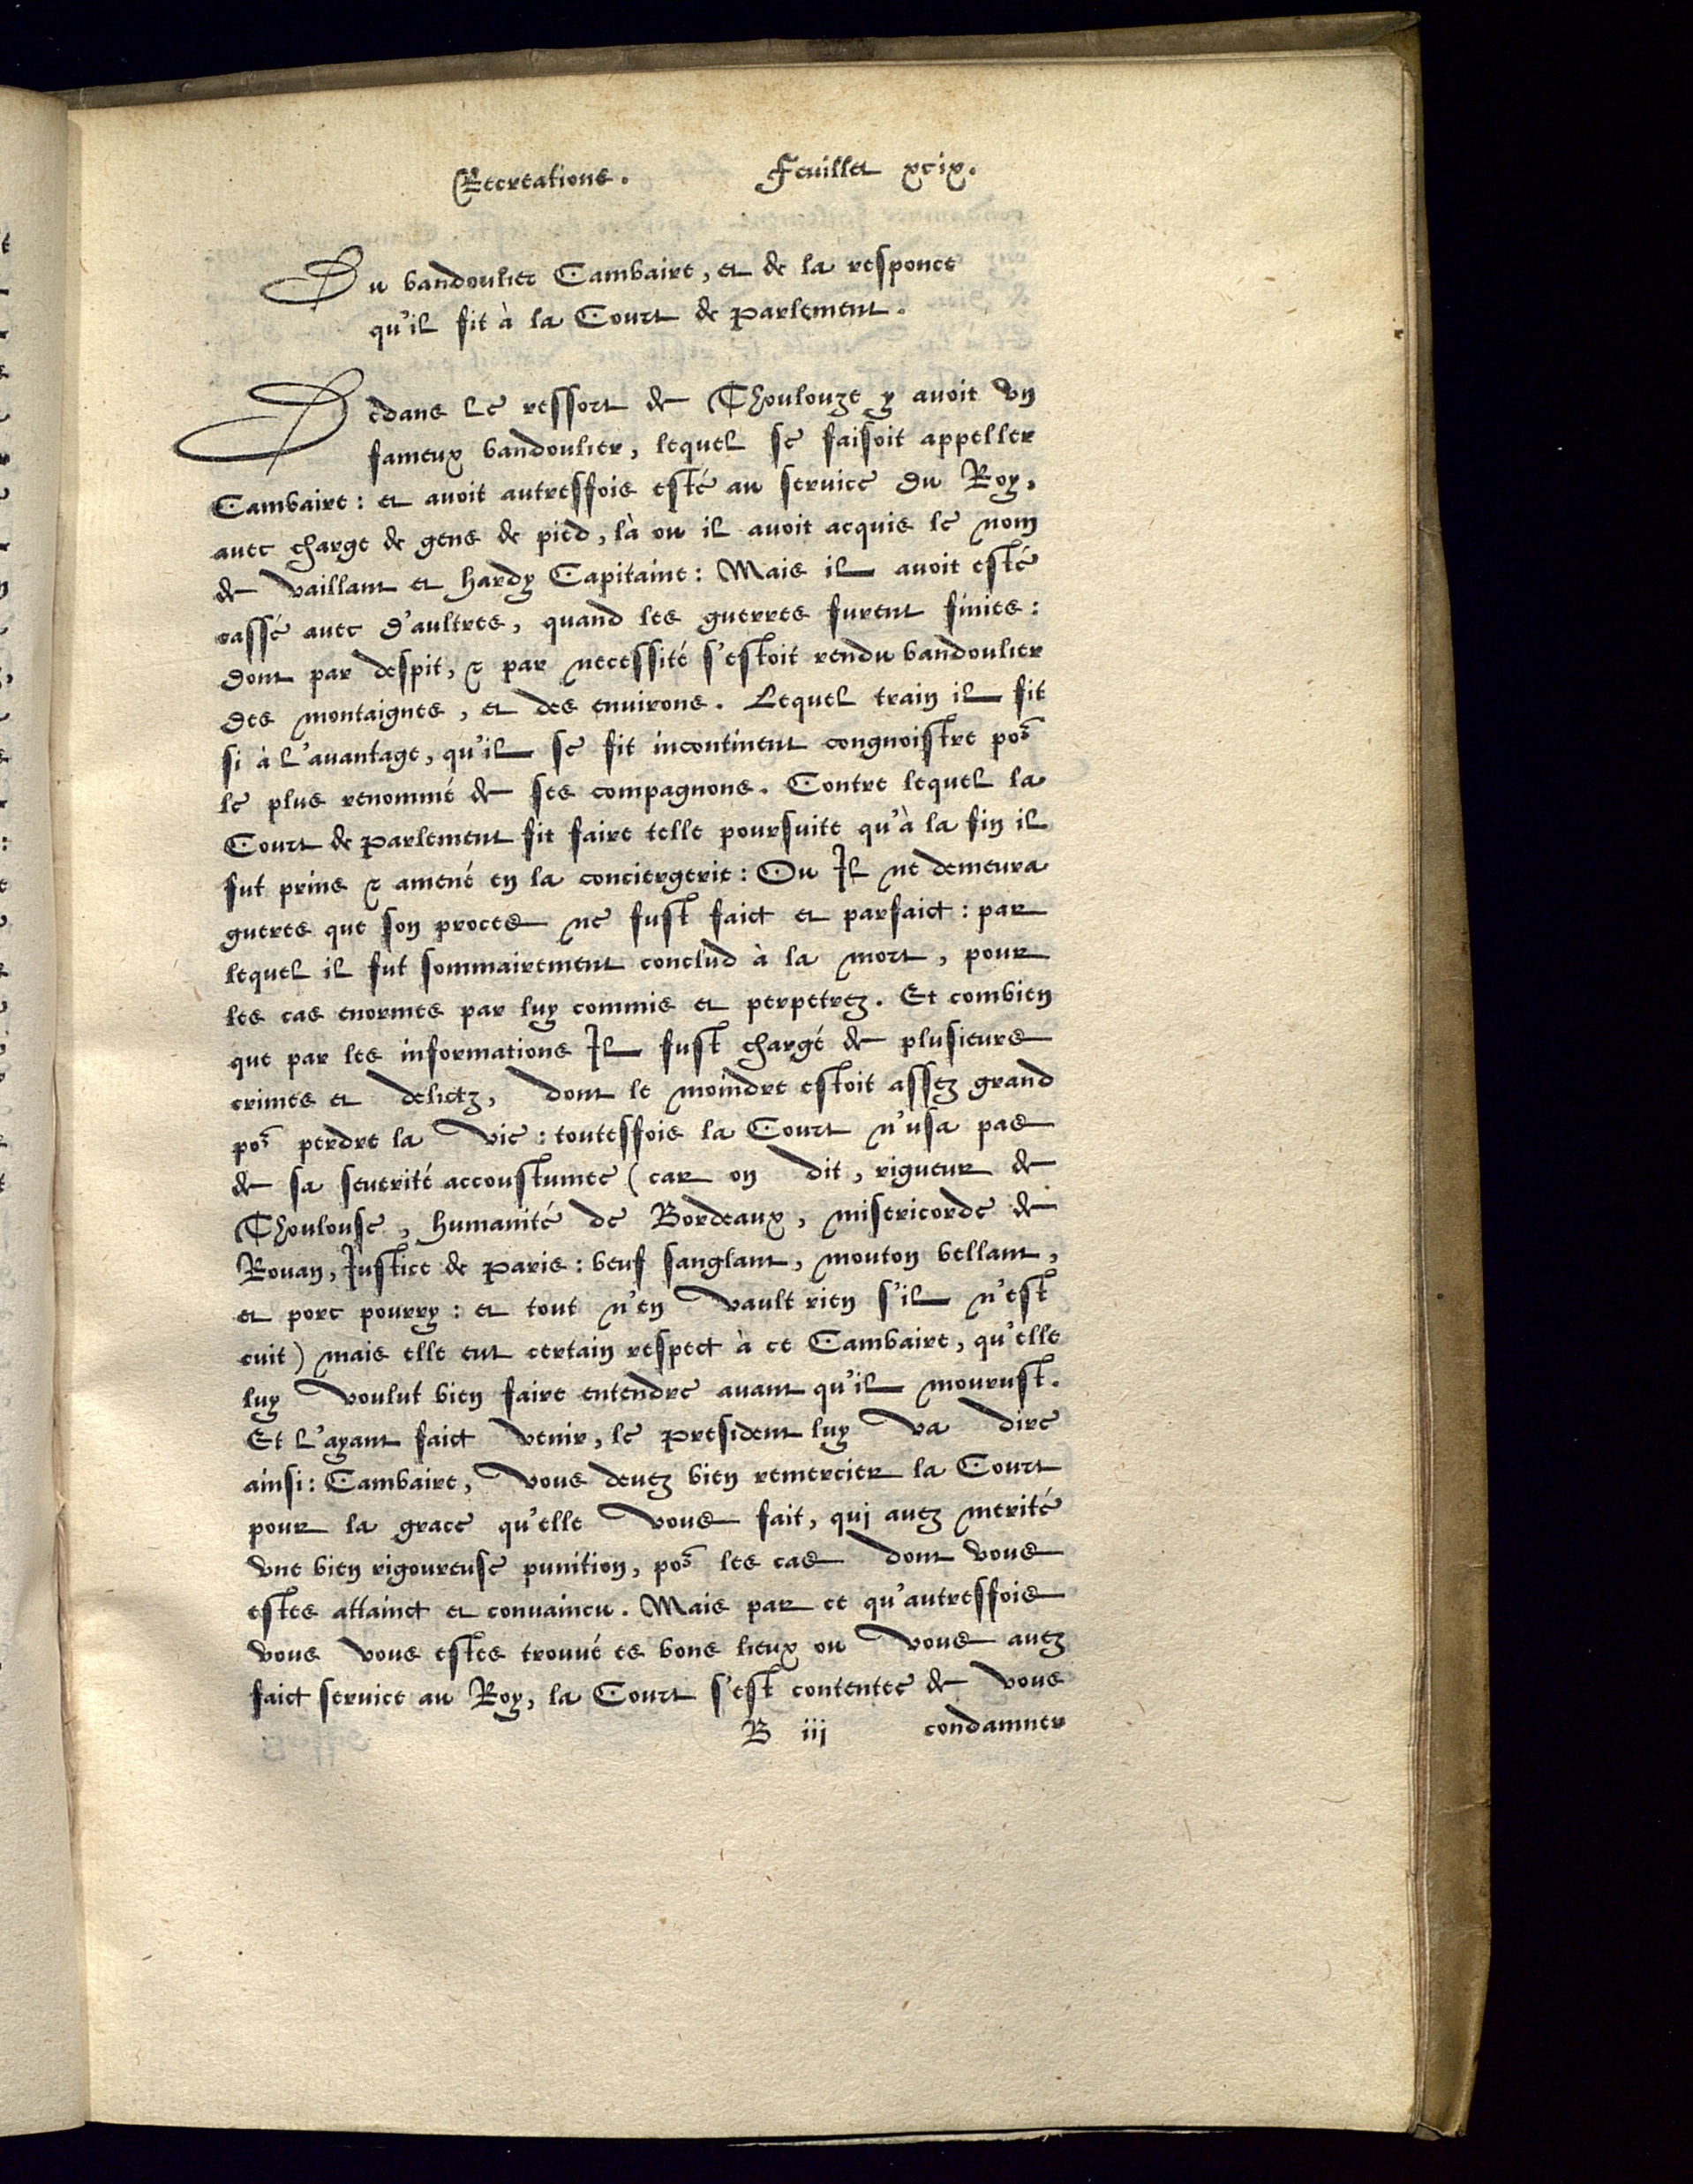 Recreations. Feuillet xcix.
Du bandoulier Cambaire, et de la responce
qu'il fit à la Court de Parlement.
Dedans le ressort de Thoulouze y auoit vn
fameux bandoulier, lequel se faisoit appeller
Cambaire: et auoit autresfois esté au seruice du Roy,
auec charge de gens de pied, là ou il auoit acquis le nom
de vaillant et hardy Capitaine: Mais il auoit esté
cassé auec d'aultres, quand les guerres furent finies:
dont par despit, & par necessité s'estoit rendu bandoulier
des montaignes, et des enuirons. Lequel train il fit
si à l'auantage, qu'il se fit incontinent congnoistre por̃
le plus renommé de ses compagnons. Contre lequel la
Court de Parlement fit faire telle poursuite qu'à la fin il
fut prins & amené en la conciergerie: Ou Il ne demeura
gueres que son proces ne fust faict et parfaict: par
lequel il fut sommairement conclud à la mort, pour
les cas enormes par luy commis et perpetrez. Et combien
que par les informations Il fust chargé de plusieurs
crimes et delictz, dont le moindre estoit assez grand
por̃ perdre la vie: toutesfois la Court n'usa pas
de sa seuerité accoustumee (car on dit, rigueur de
Thoulouse, humanité de Bordeaux, misericorde de
Rouan, Justice de Paris: beuf sanglant, mouton bellant,
et porc pourry: et tout n'en vault rien s'il n'est
cuit) mais elle eut certain respect à ce Cambaire, qu'elle
luy voulut bien faire entendre auant qu'il mourust.
Et l'ayant faict venir, le President luy va dire
ainsi: Cambaire, vous deuez bien remercier la Court
pour la grace qu'elle vous fait, qui auez merité
vne bien rigoureuse punition, por̃ les cas dont vous
estes attainct et conuaincu. Mais par ce qu'autresfois
vous vous estes trouué es bons lieux ou vous auez
faict seruice au Roy, la Court s'est contentee de vous
B iij condamner